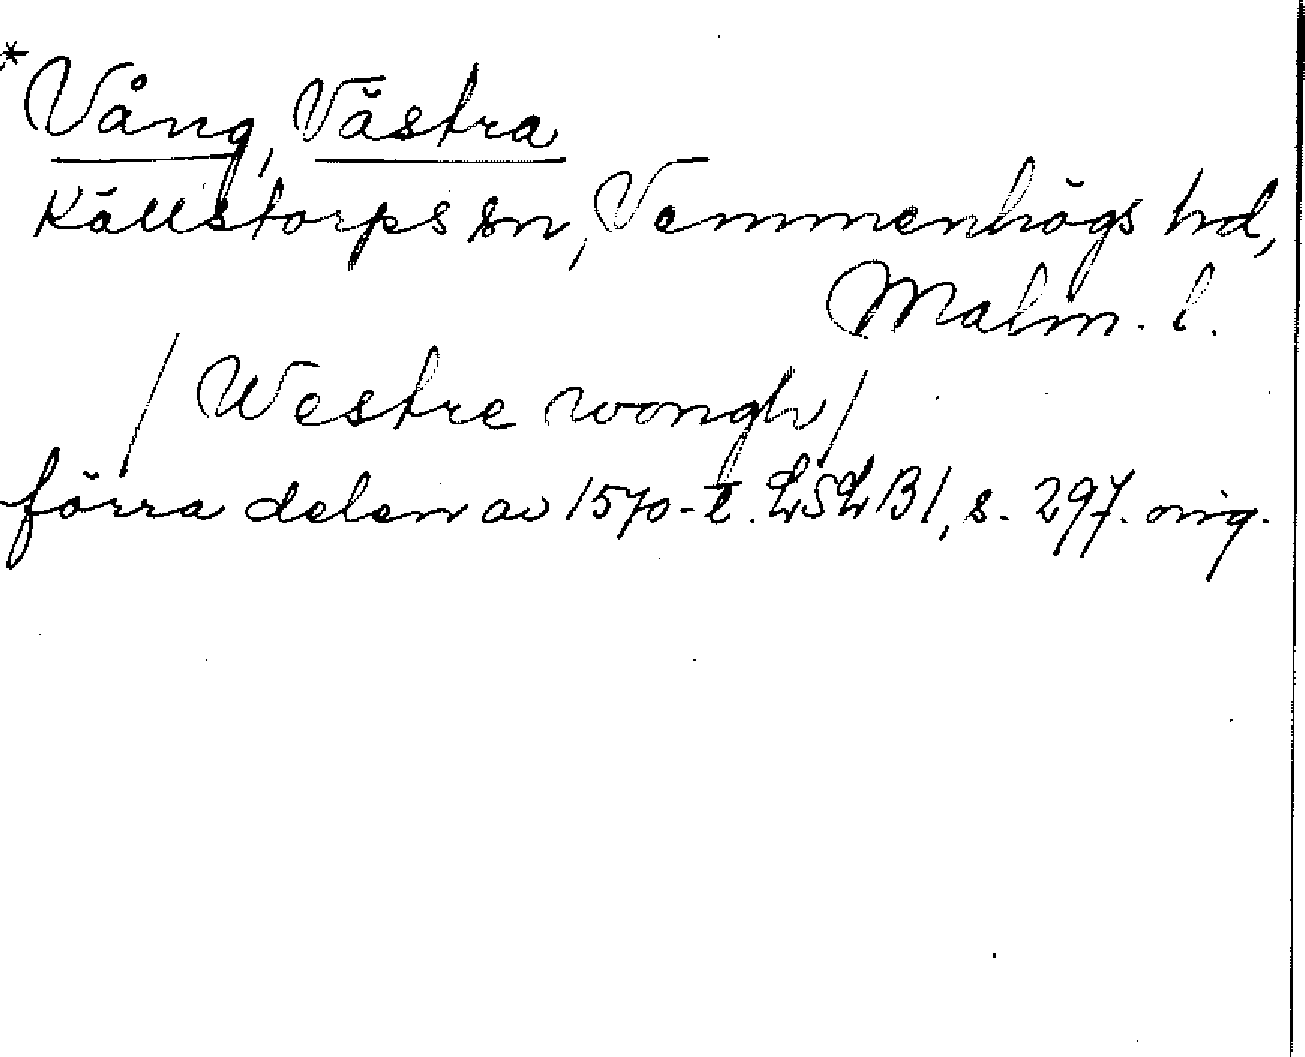 *Vång, Västra
Källstorps sn, Vemmenhögs hd,
Malm. l.
/Westre wongh/
förra delen av 1570-t. LSLB1, s. 297. orig.